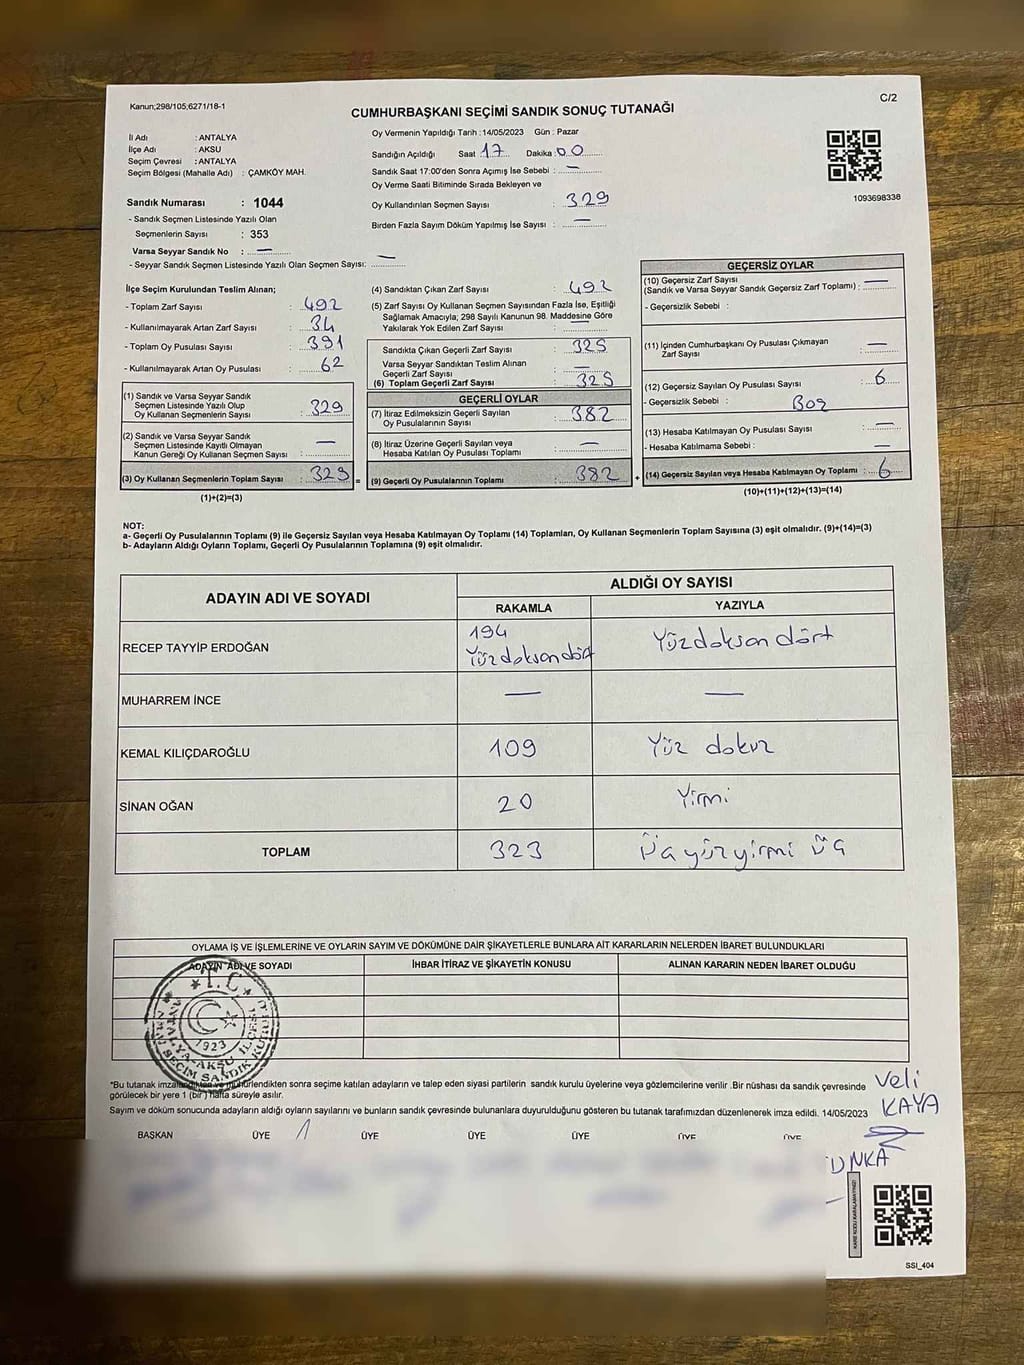 Kanun;298/105,6271/18-1
C/2
CUMHURBAŞKANI SEÇİMİ SANDIK SONUÇ TUTANAĞI
İl Adı : ANTALYA
İlçe Adı : AKSU
Seçim Çevresi : ANTALYA
Seçim Bölgesi (Mahalle Adı) : ÇAMKÖY MAH.
Sandık Numarası : 1044
- Sandık Seçmen Listesinde Yazılı Olan
Seçmenlerin Sayısı : 353
Varsa Seyyar Sandık No : —
- Seyyar Sandık Seçmen Listesinde Yazılı Olan Seçmen Sayısı: —
Oy Vermenin Yapıldığı Tarih : 14/05/2023 Gün : Pazar
Sandığın Açıldığı Saat 17 Dakika : 00
Sandık Saat 17:00'den Sonra Açımış İse Sebebi : —
Oy Verme Saati Bitiminde Sırada Bekleyen ve
Oy Kullandırılan Seçmen Sayısı : 329
Birden Fazla Sayım Döküm Yapılmış İse Sayısı : —
1093698338
İlçe Seçim Kurulundan Teslim Alınan;
- Toplam Zarf Sayısı : 492
- Kullanılmayarak Artan Zarf Sayısı : 34
- Toplam Oy Pusulası Sayısı : 391
- Kullanılmayarak Artan Oy Pusulası : 62
(1) Sandık ve Varsa Seyyar Sandık
Seçmen Listesinde Yazılı Olup
Oy Kullanan Seçmenlerin Sayısı : 329
(2) Sandık ve Varsa Seyyar Sandık
Seçmen Listesinde Kayıtlı Olmayan
Kanun Gereği Oy Kullanan Seçmen Sayısı : —
(3) Oy Kullanan Seçmenlerin Toplam Sayısı : 329
(1)+(2)=(3)
(4) Sandıktan Çıkan Zarf Sayısı : 492
(5) Zarf Sayısı Oy Kullanan Seçmen Sayısından Fazla İse, Eşitliği
Sağlamak Amacıyla; 298 Sayılı Kanunun 98. Maddesine Göre
Yakılarak Yok Edilen Zarf Sayısı : —
Sandıkta Çıkan Geçerli Zarf Sayısı : 325
Varsa Seyyar Sandıktan Teslim Alınan
Geçerli Zarf Sayısı : —
(6) Toplam Geçerli Zarf Sayısı : 325
GEÇERLİ OYLAR
(7) İtiraz Edilmeksizin Geçerli Sayılan
Oy Pusulalarının Sayısı : 382
(8) İtiraz Üzerine Geçerli Sayılan veya
Hesaba Katılan Oy Pusulası Toplamı : —
(9) Geçerli Oy Pusulalarının Toplamı : 382
GEÇERSİZ OYLAR
(10) Geçersiz Zarf Sayısı
(Sandık ve Varsa Seyyar Sandık Geçersiz Zarf Toplamı) : —
- Geçersizlik Sebebi :
(11) İçinden Cumhurbaşkanı Oy Pusulası Çıkmayan
Zarf Sayısı : —
(12) Geçersiz Sayılan Oy Pusulası Sayısı : 6
- Geçersizlik Sebebi : Boş
(13) Hesaba Katılmayan Oy Pusulası Sayısı : —
- Hesaba Katılmama Sebebi : —
(14) Geçersiz Sayılan veya Hesaba Katılmayan Oy Toplamı : 6
(10)+(11)+(12)+(13)=(14)
NOT:
a- Geçerli Oy Pusulalarının Toplamı (9) ile Geçersiz Sayılan veya Hesaba Katılmayan Oy Toplamı (14) Toplamları, Oy Kullanan Seçmenlerin Toplam Sayısına (3) eşit olmalıdır. (9)+(14)=(3)
b- Adayların Aldığı Oyların Toplamı, Geçerli Oy Pusulalarının Toplamına (9) eşit olmalıdır.
ADAYIN ADI VE SOYADI
ALDIĞI OY SAYISI
RAKAMLA YAZIYLA
RECEP TAYYİP ERDOĞAN 194 Yüzdoksandört Yüzdoksan dört
MUHARREM İNCE — —
KEMAL KILIÇDAROĞLU 109 Yüz dokuz
SİNAN OĞAN 20 Yirmi
TOPLAM 323 Üçyüzyirmi üç
OYLAMA İŞ VE İŞLEMLERİNE VE OYLARIN SAYIM VE DÖKÜMÜNE DAİR ŞİKAYETLERLE BUNLARA AİT KARARLARIN NELERDEN İBARET BULUNDUKLARI
ADAYIN ADI VE SOYADI İHBAR İTİRAZ VE ŞİKAYETİN KONUSU ALINAN KARARIN NEDEN İBARET OLDUĞU
T.C.
1923
ANTALYA-AKSU İLÇESİ
SEÇİM SANDIK KURULU
*Bu tutanak imzalandıktan ve mühürlendikten sonra seçime katılan adayların ve talep eden siyasi partilerin sandık kurulu üyelerine veya gözlemcilerine verilir .Bir nüshası da sandık çevresinde
görülecek bir yere 1 (bir ) hafta süreyle asılır.
Sayım ve döküm sonucunda adayların aldığı oyların sayılarını ve bunların sandık çevresinde bulunanlara duyurulduğunu gösteren bu tutanak tarafımızdan düzenlenerek imza edildi. 14/05/2023
Veli
KAYA
BAŞKAN ÜYE ÜYE ÜYE ÜYE ÜYE ÜYE
KARE KODU KARALAMAYINIZ!
SSI_404